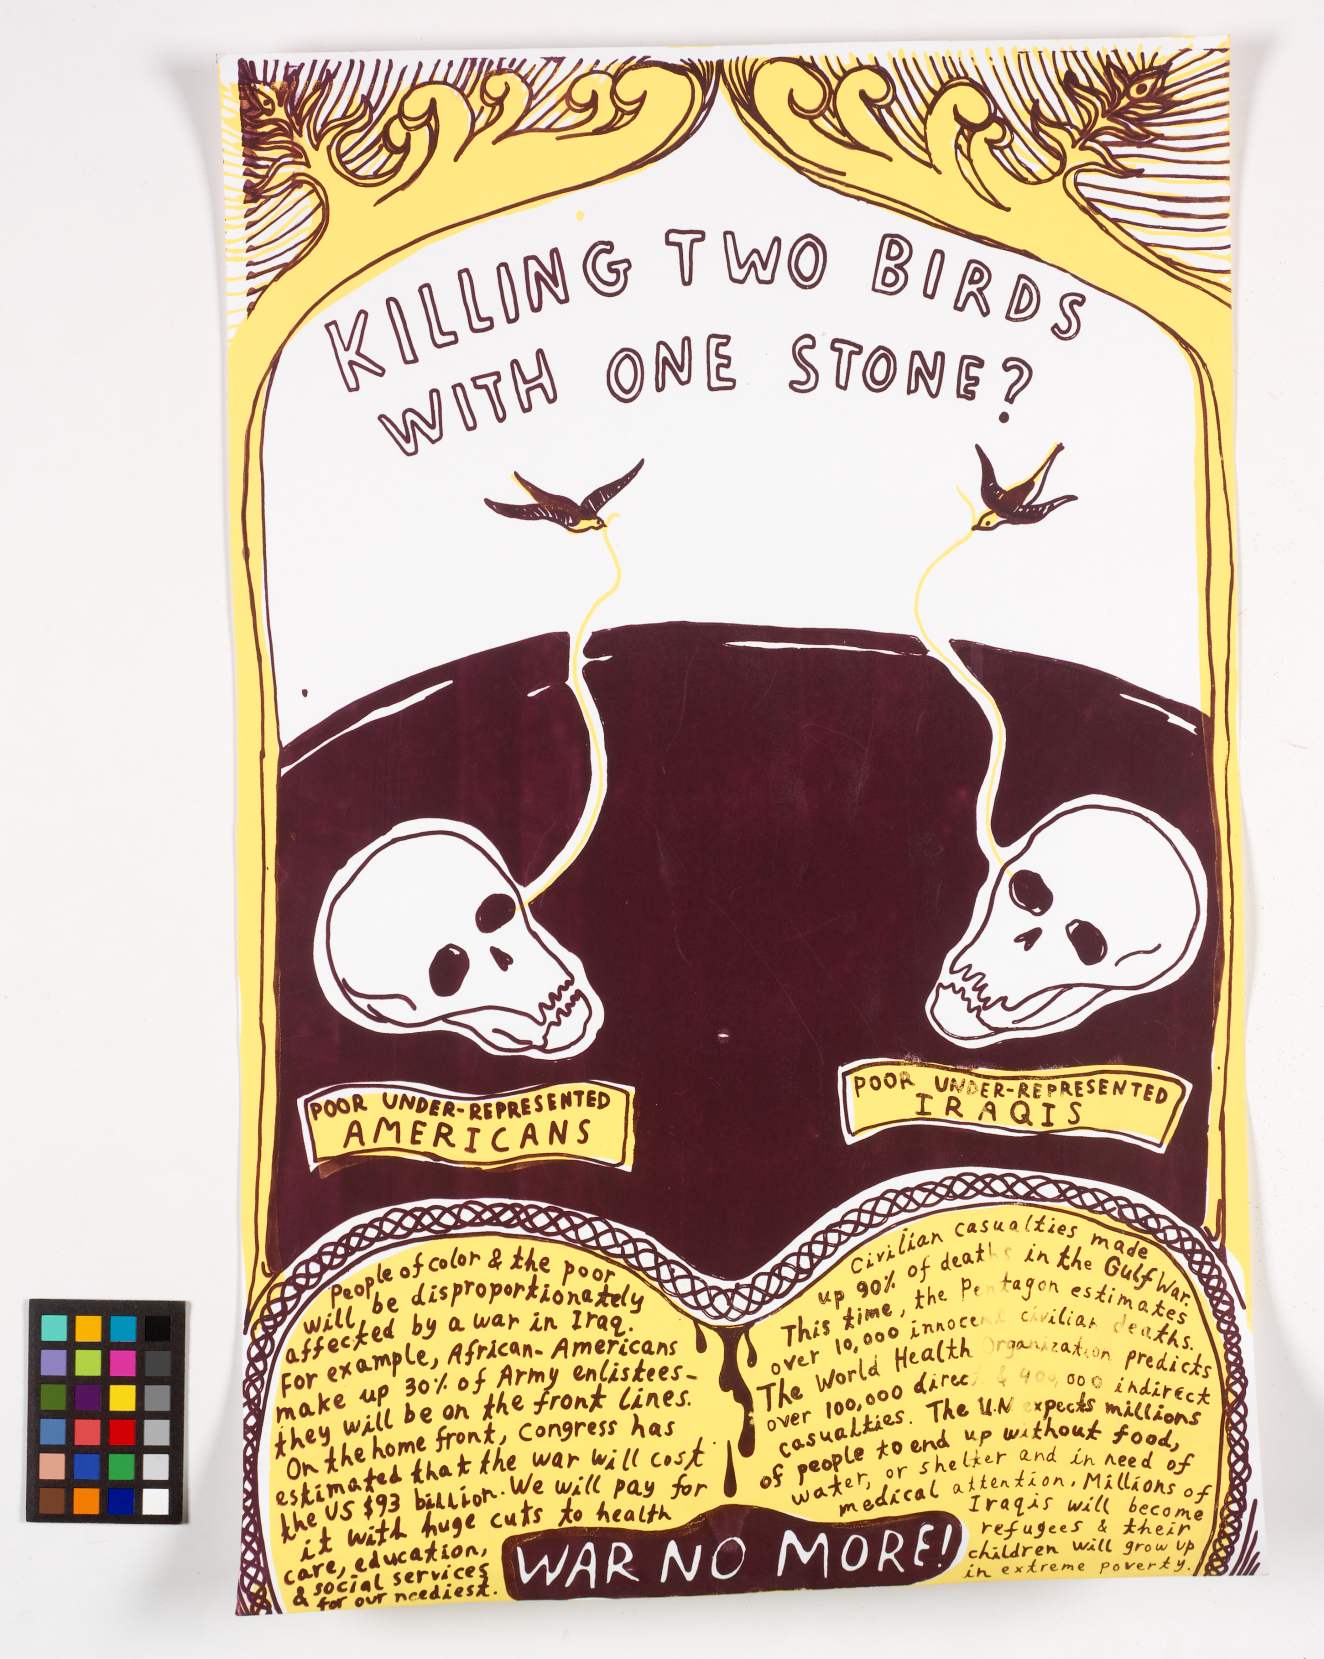 KILLING TWO BIRDS
WITH ONE STONE?
POOR UNDER-REPRESENTED
AMERICANS
POOR UNDER-REPRESENTED
IRAQIS
People of color & the poor
will be disproportionately
affected by a war in Iraq.
For example, African-Americans
make up 30% of Army enlistees-
they will be on the front lines.
On the home front, Congress has
estimated that the war will cost
the US $93 billion. We will pay for
it with huge cuts to health
care, education,
& social services
for our neediest.
Civilian casualties made
up 90% of deaths in the Gulf War.
This time, the Pentagon estimates
over 10,000 innocent civilian deaths.
The World Health Organization predicts
over 100,000 direct & 400,000 indirect
casualties. The U.N expects millions
of people to end up without food,
water, or shelter and in need of
medical attention. Millions of
Iraqis will become
refugees & their
children will grow up
in extreme poverty.
WAR NO MORE!